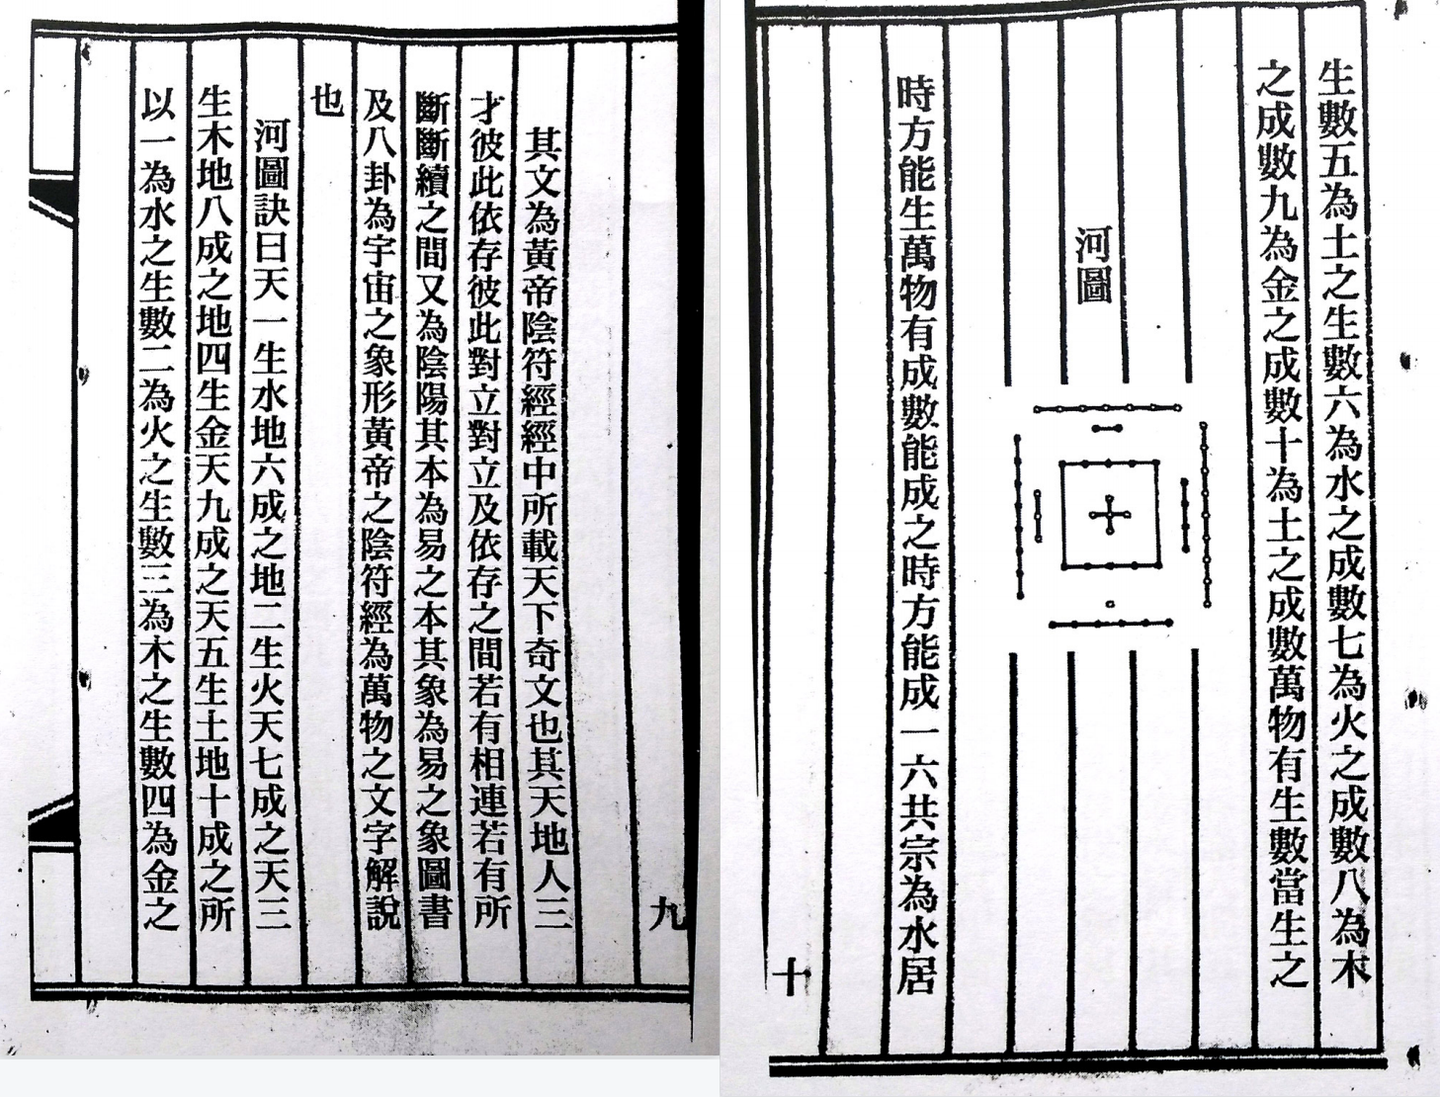 其文為黃帝陰符經經中所載天下奇文也其天地人三
才彼此依存彼此對立對立及依存之間若有相連若有所
斷斷續之間又為陰陽其本為易之本其象為易之象圖書
及八卦為宇宙之象形黃帝之陰符經為萬物之文字解說
也
河圖訣曰天一生水地六成之地二生火天七成之天三
生木地八成之地四生金天九成之天五生土地十成之所
以一為水之生數二為火之生數三為木之生數四為金之
九
生數五為土之生數六為水之成數七為火之成數八為木
之成數九為金之成數十為土之成數萬物有生數當生之
河圖
時方能生萬物有成數能成之時方能成一六共宗為水居
十